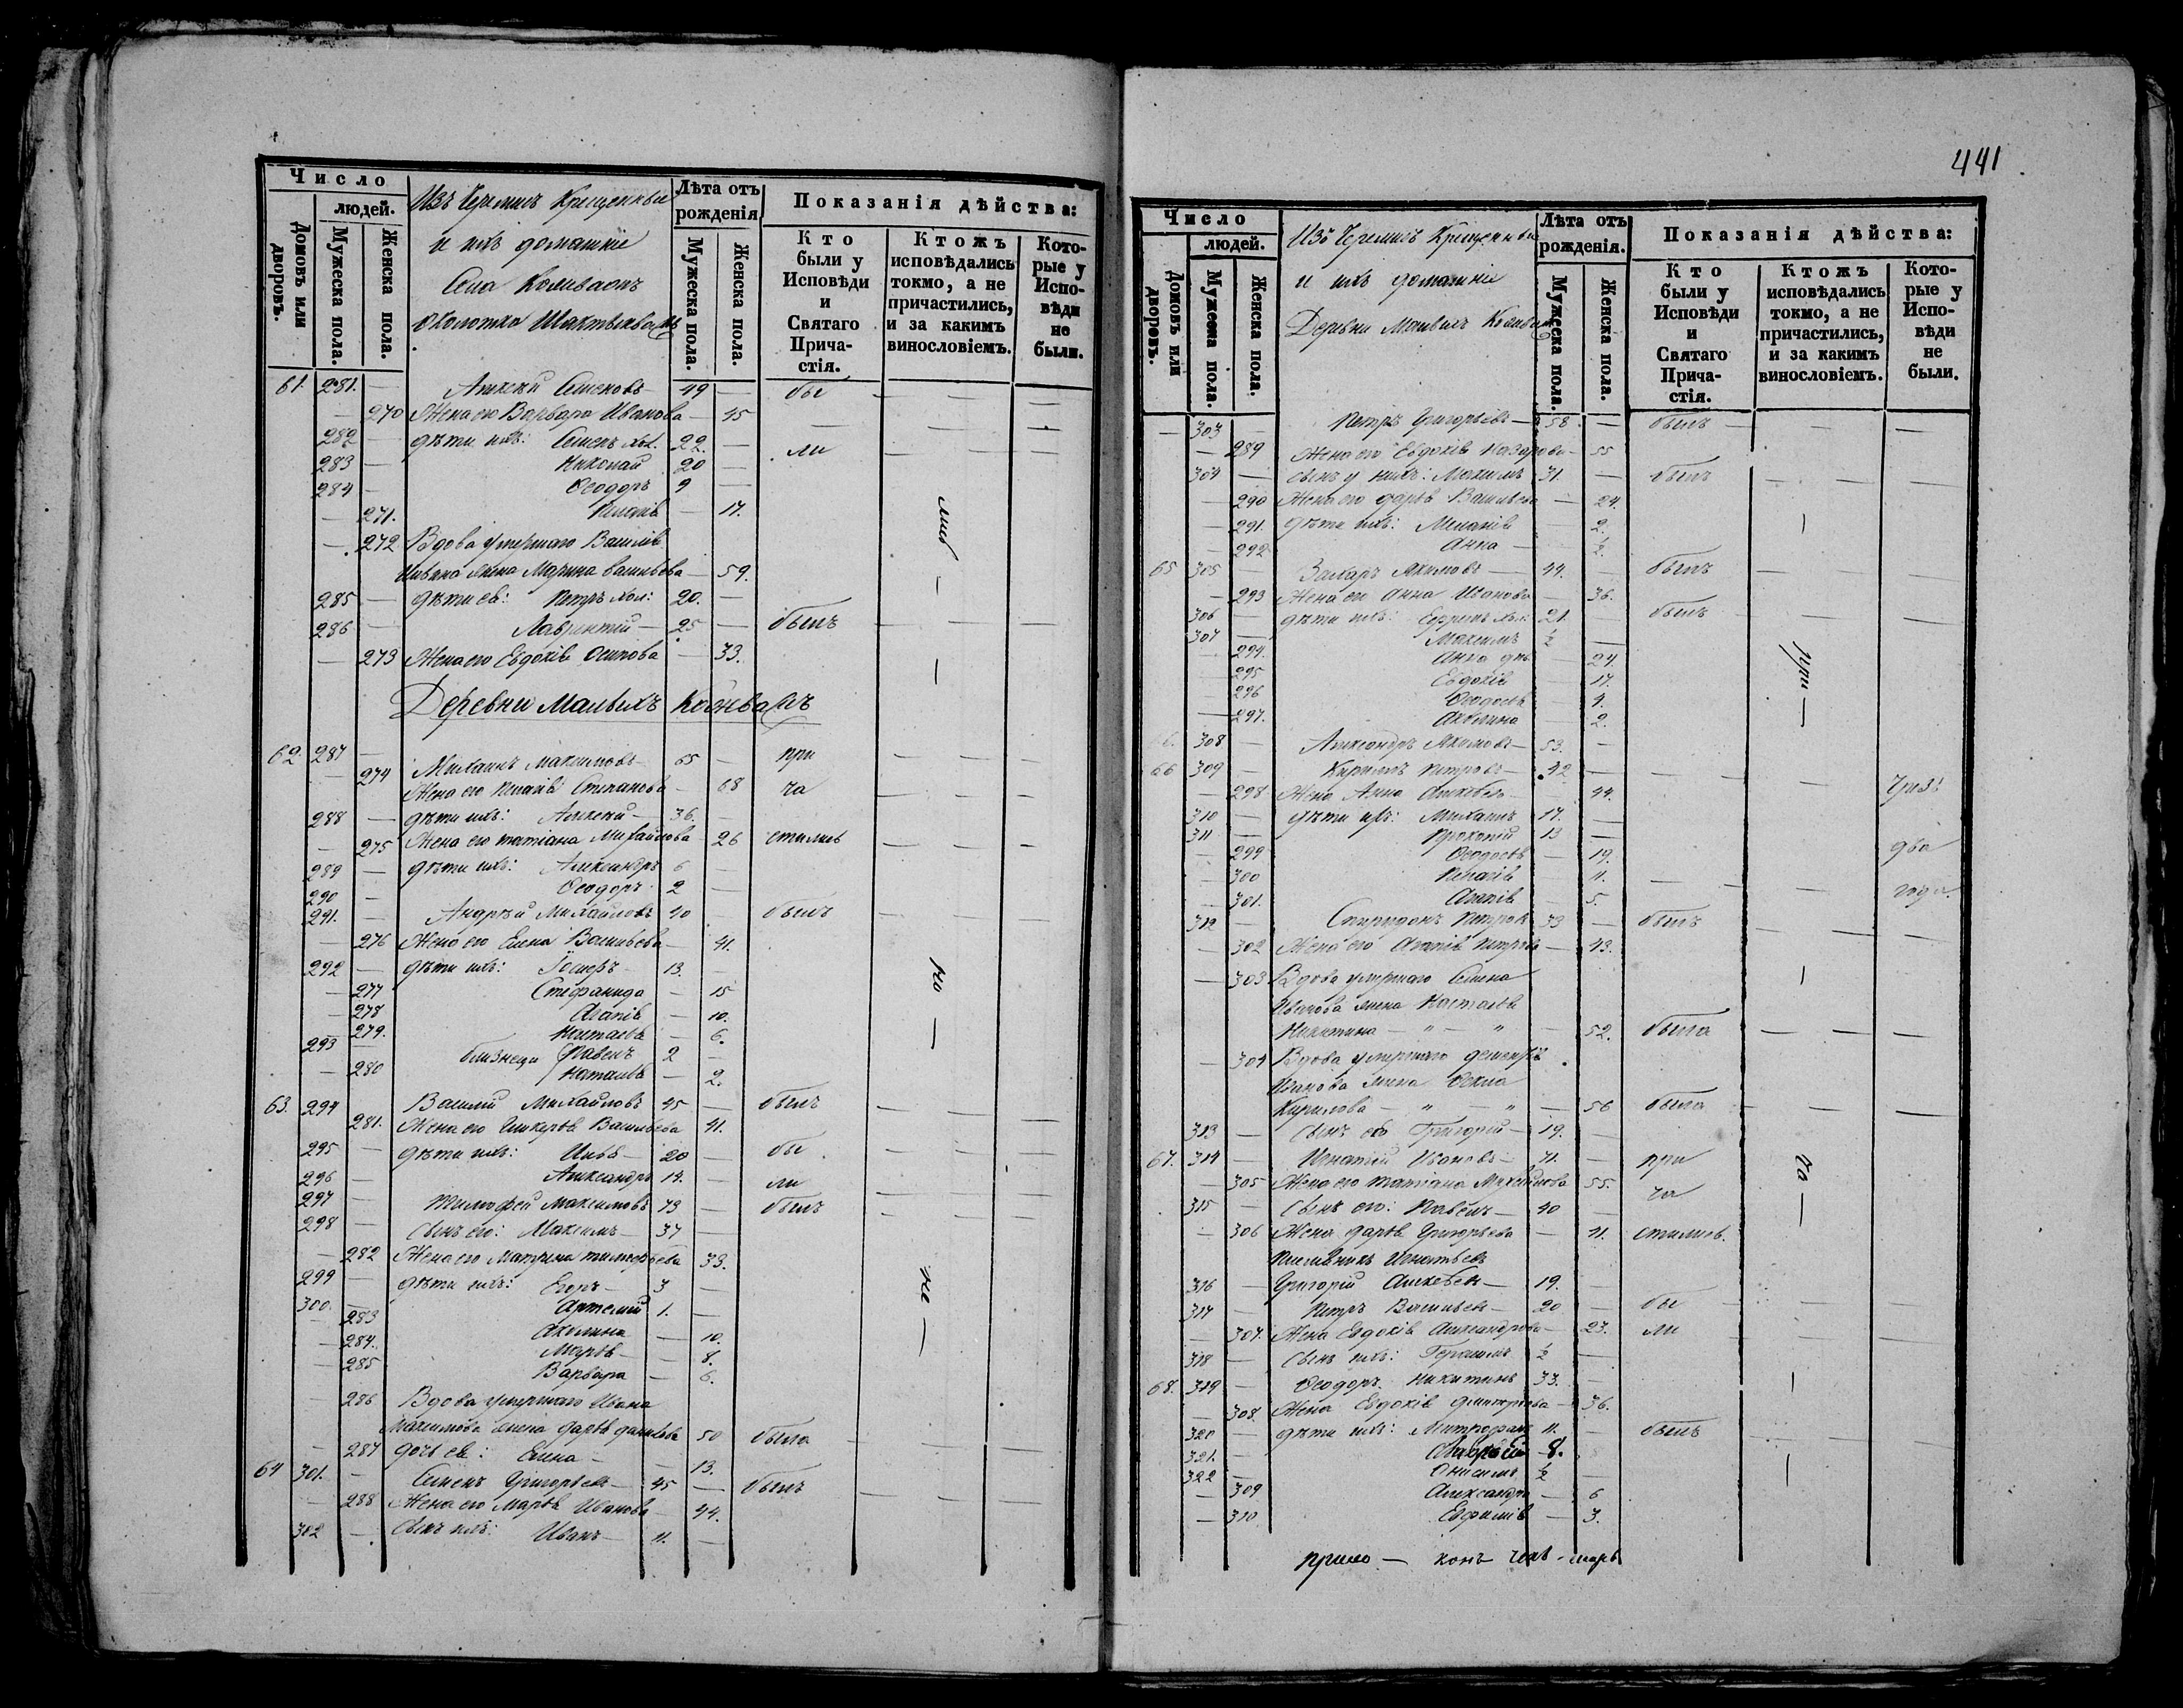 441
Число
людей.
Домовъ или дворовъ.
Мужеска пола.
Женска пола.
Изъ Черемисъ Крещенныи
и ихъ домашніе
Села
Околотка
Лѣта отъ рожденія
Мужеска пола.
Женска пола.
Показанія дѣйства:
Кто были у Исповѣди и Святаго Причастія.
Ктожъ исповѣдались токмо, а не причастились, и за какимъ винословіемъ.
Которые у Исповѣди не были.
61. 281. — Алексѣй Семеновъ 49 — бы
— 270 Жена его Варвара Иванова — 45
282 — дѣти ихъ: Семенъ хол. 22. — ли
283 — Николай 20 —
284 — Ѳеодоръ 9 —
— 271. — 17.
— 272 Вдова умершаго Василія
жена Марина Васильева — 59.
285 — дѣти ея: Петръ хол: 20. —
286 — Лаврентій — 25 — былъ
— 273 Жена его Евдокія Осипова — 33.
Деревни Малыхъ
62. 287 — Михаилъ Максимовъ 65 — при
— 274 Жена его Степанова — 68 ча
288 — дѣти ихъ: Алексѣй — 36. —
— 275 Жена его Татіана Михайлова 26 стились
289 — дѣти ихъ: Александръ 6 —
290 — Ѳеодоръ 2 —
291. — Андрей Михайловъ 40 — былъ
— 276 Жена его Елена Васильева — 41.
292 — дѣти ихъ: Іосифъ 13. —
— 277 Стефанида — 15
— 278 Агапія — 10.
— 279. Настасья — 6.
293 — близнецы Павелъ 2 —
— 280 Наталья — 2.
63. 294 Василій Михайловъ 45 — былъ
281. Жена его Васильева 41.
295 — дѣти ихъ: Илья — 20 — бы
296 — Александръ 14. — ли
297 — Тимофей Максимовъ 73 — былъ
298 — Сынъ его: Максимъ — 37 —
— 282 Жена его Матрина Тимофеева 33.
299 — дѣти ихъ: Егоръ — 3 —
300. — Артемій 1. —
283 Акилина — 10.
— 284. Марья — 8.
— 285 Варвара — 6.
— 286 Вдова умершаго Ивана
Максимова жена Дарья Данилова 50 была
— 287 дочь ея: Елена — 13.
64 301. — Семенъ Григорьевъ — 45 — былъ
— 288 Жена его Марья Иванова 44.
302 — Сынъ ихъ: Иванъ — 11. —
Число
людей.
Домовъ или дворовъ.
Мужеска пола.
Женска пола.
Изъ Черемисъ Крещенныи
и ихъ домашніе
Деревни Малыхъ
Лѣта отъ рожденія.
Мужеска пола.
Женска пола.
Показанія дѣйства:
Кто были у Исповѣди и Святаго Причастія.
Ктожъ исповѣдались токмо, а не причастились, и за какимъ винословіемъ.
Которые у Исповѣди не были.
— 303 — Петръ Григорьевъ — 58 — былъ
— 289 Жена его Евдокія — 55
304 — сынъ у нихъ: Максимъ 31. — былъ
— 290 Жена его Дарья Васильева — 24.
— 291. дѣти ихъ: Меланія 2.
— 292 Анна — ½
65 305 — Захаръ Якимовъ — 44. — былъ
— 293 Жена его Анна Иванова — 36.
306 — дѣти ихъ: Ефремъ хол: 21. — былъ
307 — Максимъ ½ —
294. Анна дѣв. — 24.
295 Евдокія — 17.
296 Ѳеодосья 4.
— 297. Акилина — 2.
308 — Александръ Якимовъ — 53. —
66 309 — Кириллъ Петровъ — 42 —
— 298 Жена Анна Алексѣева — 44. чрезъ
310 — дѣти ихъ: Михаилъ 17. —
311 — Прокопій 13 —
— 299 Ѳеодосья — 19. два
— 300 — 11.
— 301. Агапія — 5. года.
312 — Спиридонъ Петровъ 33 — былъ
— 302 Жена его Агапія Петрова — 43.
— 303 Вдова умершаго Семена
Иванова жена Настасья
Никитина — " — " — 52. была
— 304 Вдова умершаго
Иванова жена Ѳекла
Кирилова — " — " — 56 была
313 — Сынъ ея Григорій — 19. —
67. 314 — Игнатій Ивановъ — 71. — при
— 305 Жена его Татіана Михайлова 55. ча
315 — Сынъ его: Павелъ — 40 —
— 306 Жена Дарья Григорьева — 41. стились.
316 — Григорій Алексѣевъ — 19. —
317 — Петръ Васильевъ — 20 — бы
— 307. Жена Евдокія Александрова — 23. ли
318 — Сынъ ихъ: Герасимъ ½ —
68. 319 — Ѳеодоръ Никитинъ 33. —
— 308. Жена Евдокія Дмитріева — 36.
320 — дѣти ихъ: Митрофанъ 11. — былъ
321. — 8.
322 — Онисимъ ½ —
— 309 Александра — 6
— 310 Евфимія — 3.